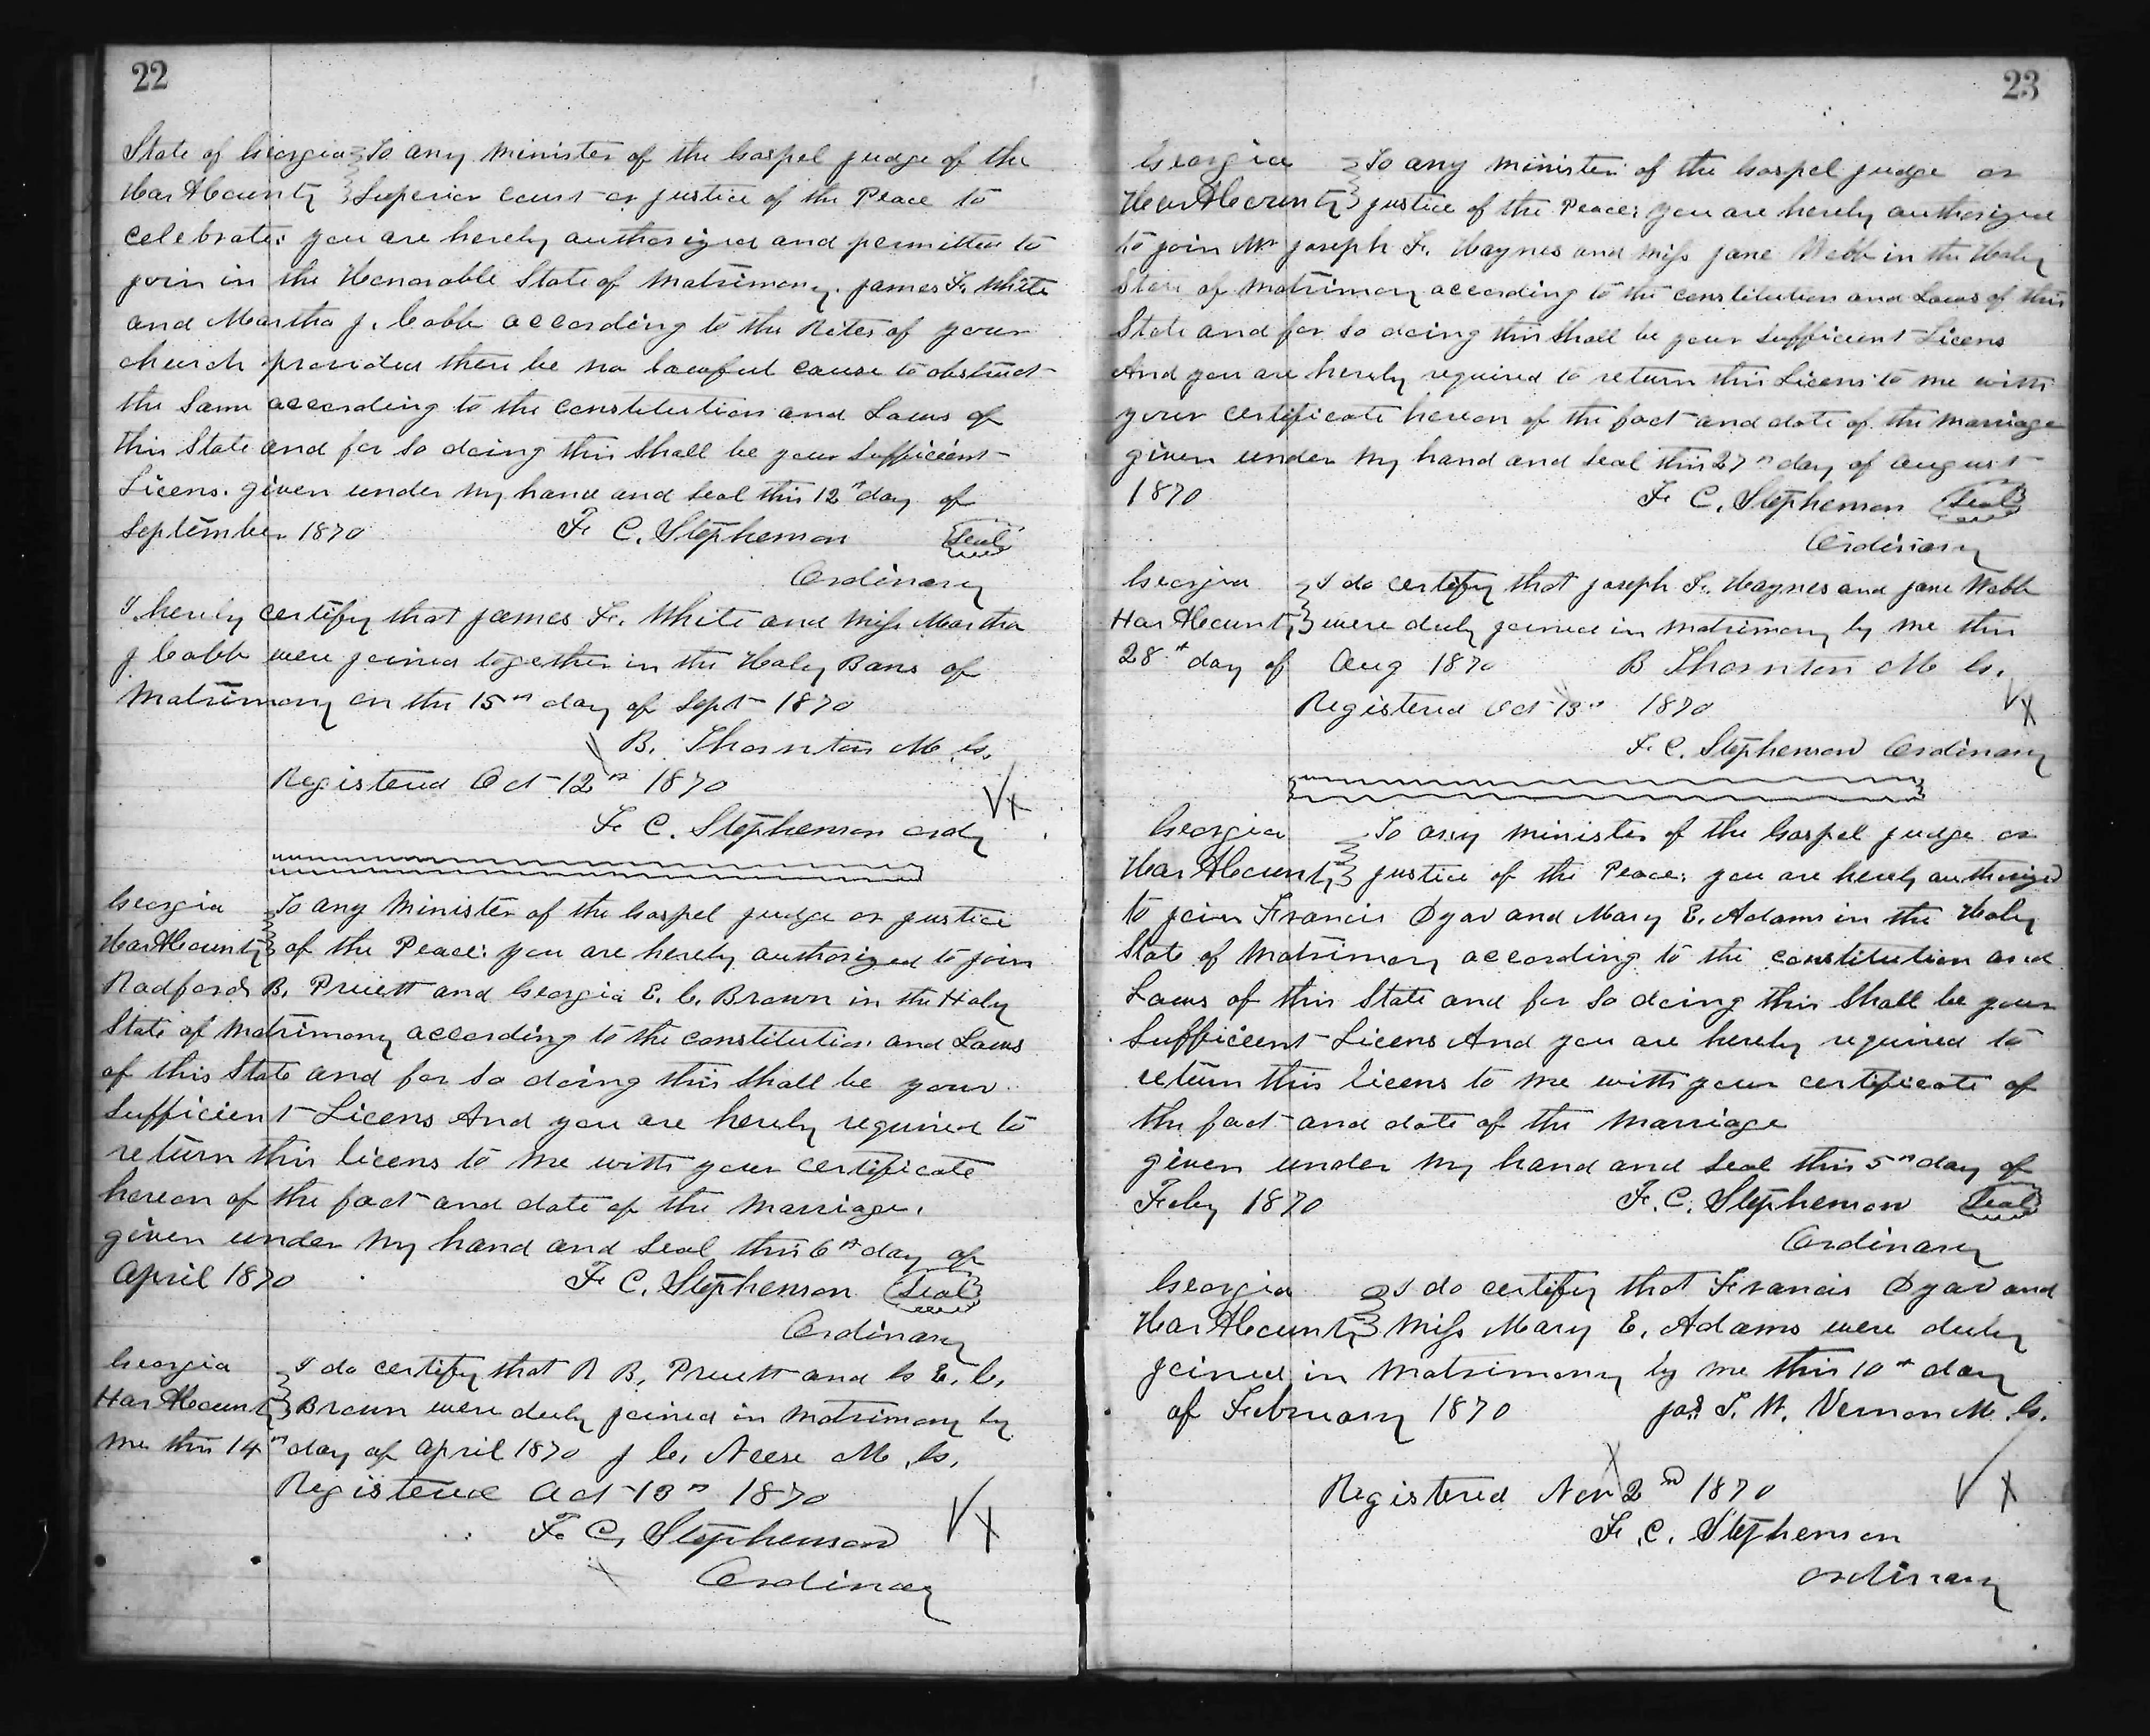 22
State of Georgia To any Minister of the Gospel judge of the
Hart County Superior Court or justice of the Peace to
celebrate: you are hereby authorized and permitted to
join in the Honorable State of Matrimony. James F. White
and Martha J. Cobb according to the Rites of your
church provided there be no lawful cause to obstruct
the Same according to the constitution and Laws of
this State and for So doing this Shall be your Sufficient
Licens. given under my hand and Seal this 12th day of
September 1870 F. C. Stephenson Seal
Ordinary
I hereby certify that James F. White and Miss Martha
J Cobb were joined together in the Holy Bans of
Matrimony on the 15th day of Sept 1870
B. Thornton M. G.
Registered Oct 12th 1870
F. C. Stephenson ordy
Georgia To any Minister of the Gospel judge or justice
Hart County of the Peace: you are hereby authorized to join
Radford B. Pruett and Georgia E. C. Brown in the Holy
State of Matrimony according to the constitution and Laws
of this State and for So doing this Shall be your
Sufficient Licens And you are hereby required to
return this licens to me with your certificate
hereon of the fact and date of the Marriage.
given under my hand and Seal this 6th day of
April 1870 F. C. Stephenson Seal
Ordinary
Georgia I do certify that R B. Pruett and G E. C.
Hart County Brown were duly joined in Matrimony by
me this 14th day of April 1870 J C. Neese M. G.
Registered Oct 13th 1870
F. C. Stephenson
Ordinary
23
Georgia To any Minister of the Gospel judge or
Hart County justice of the Peace: you are hereby authorized
to join Mr Joseph F. Haynes and Miss Jane Webb in the Holy
State of Matrimony according to the constitution and Laws of this
State and for So doing this Shall be your Sufficient Licens
And you are hereby required to return this Licens to me with
your certificate hereon of the fact and date of the Marriage
given under my hand and Seal this 27th day of August
1870 F. C. Stephenson Seal
Ordinary
Georgia I do certify that Joseph F. Haynes and Jane Webb
Hart County were duly joined in Matrimony by me this
28th day of Aug 1870 B Thornton M G.
Registered Oct 13th 1870
F. C. Stephenson Ordinary
Georgia To any Minister of the Gospel judge or
Hart County justice of the Peace: you are hereby authorized
to join Francis Dyar and Mary E. Adams in the Holy
State of Matrimony according to the constitution and
Laws of this State and for So doing this Shall be your
Sufficient Licens And you are hereby required to
return this licens to me with your certificate of
the fact and date of the Marriage
given under my hand and Seal this 5th day of
Feby 1870 F. C. Stephenson Seal
Ordinary
Georgia I do certify that Francis Dyar and
Hart County Miss Mary E. Adams were duly
joined in Matrimony by me this 10th day
of February 1870 Jas T. W. Vernon M. G.
Registered Nov 2nd 1870
F. C. Stephenson
ordinary